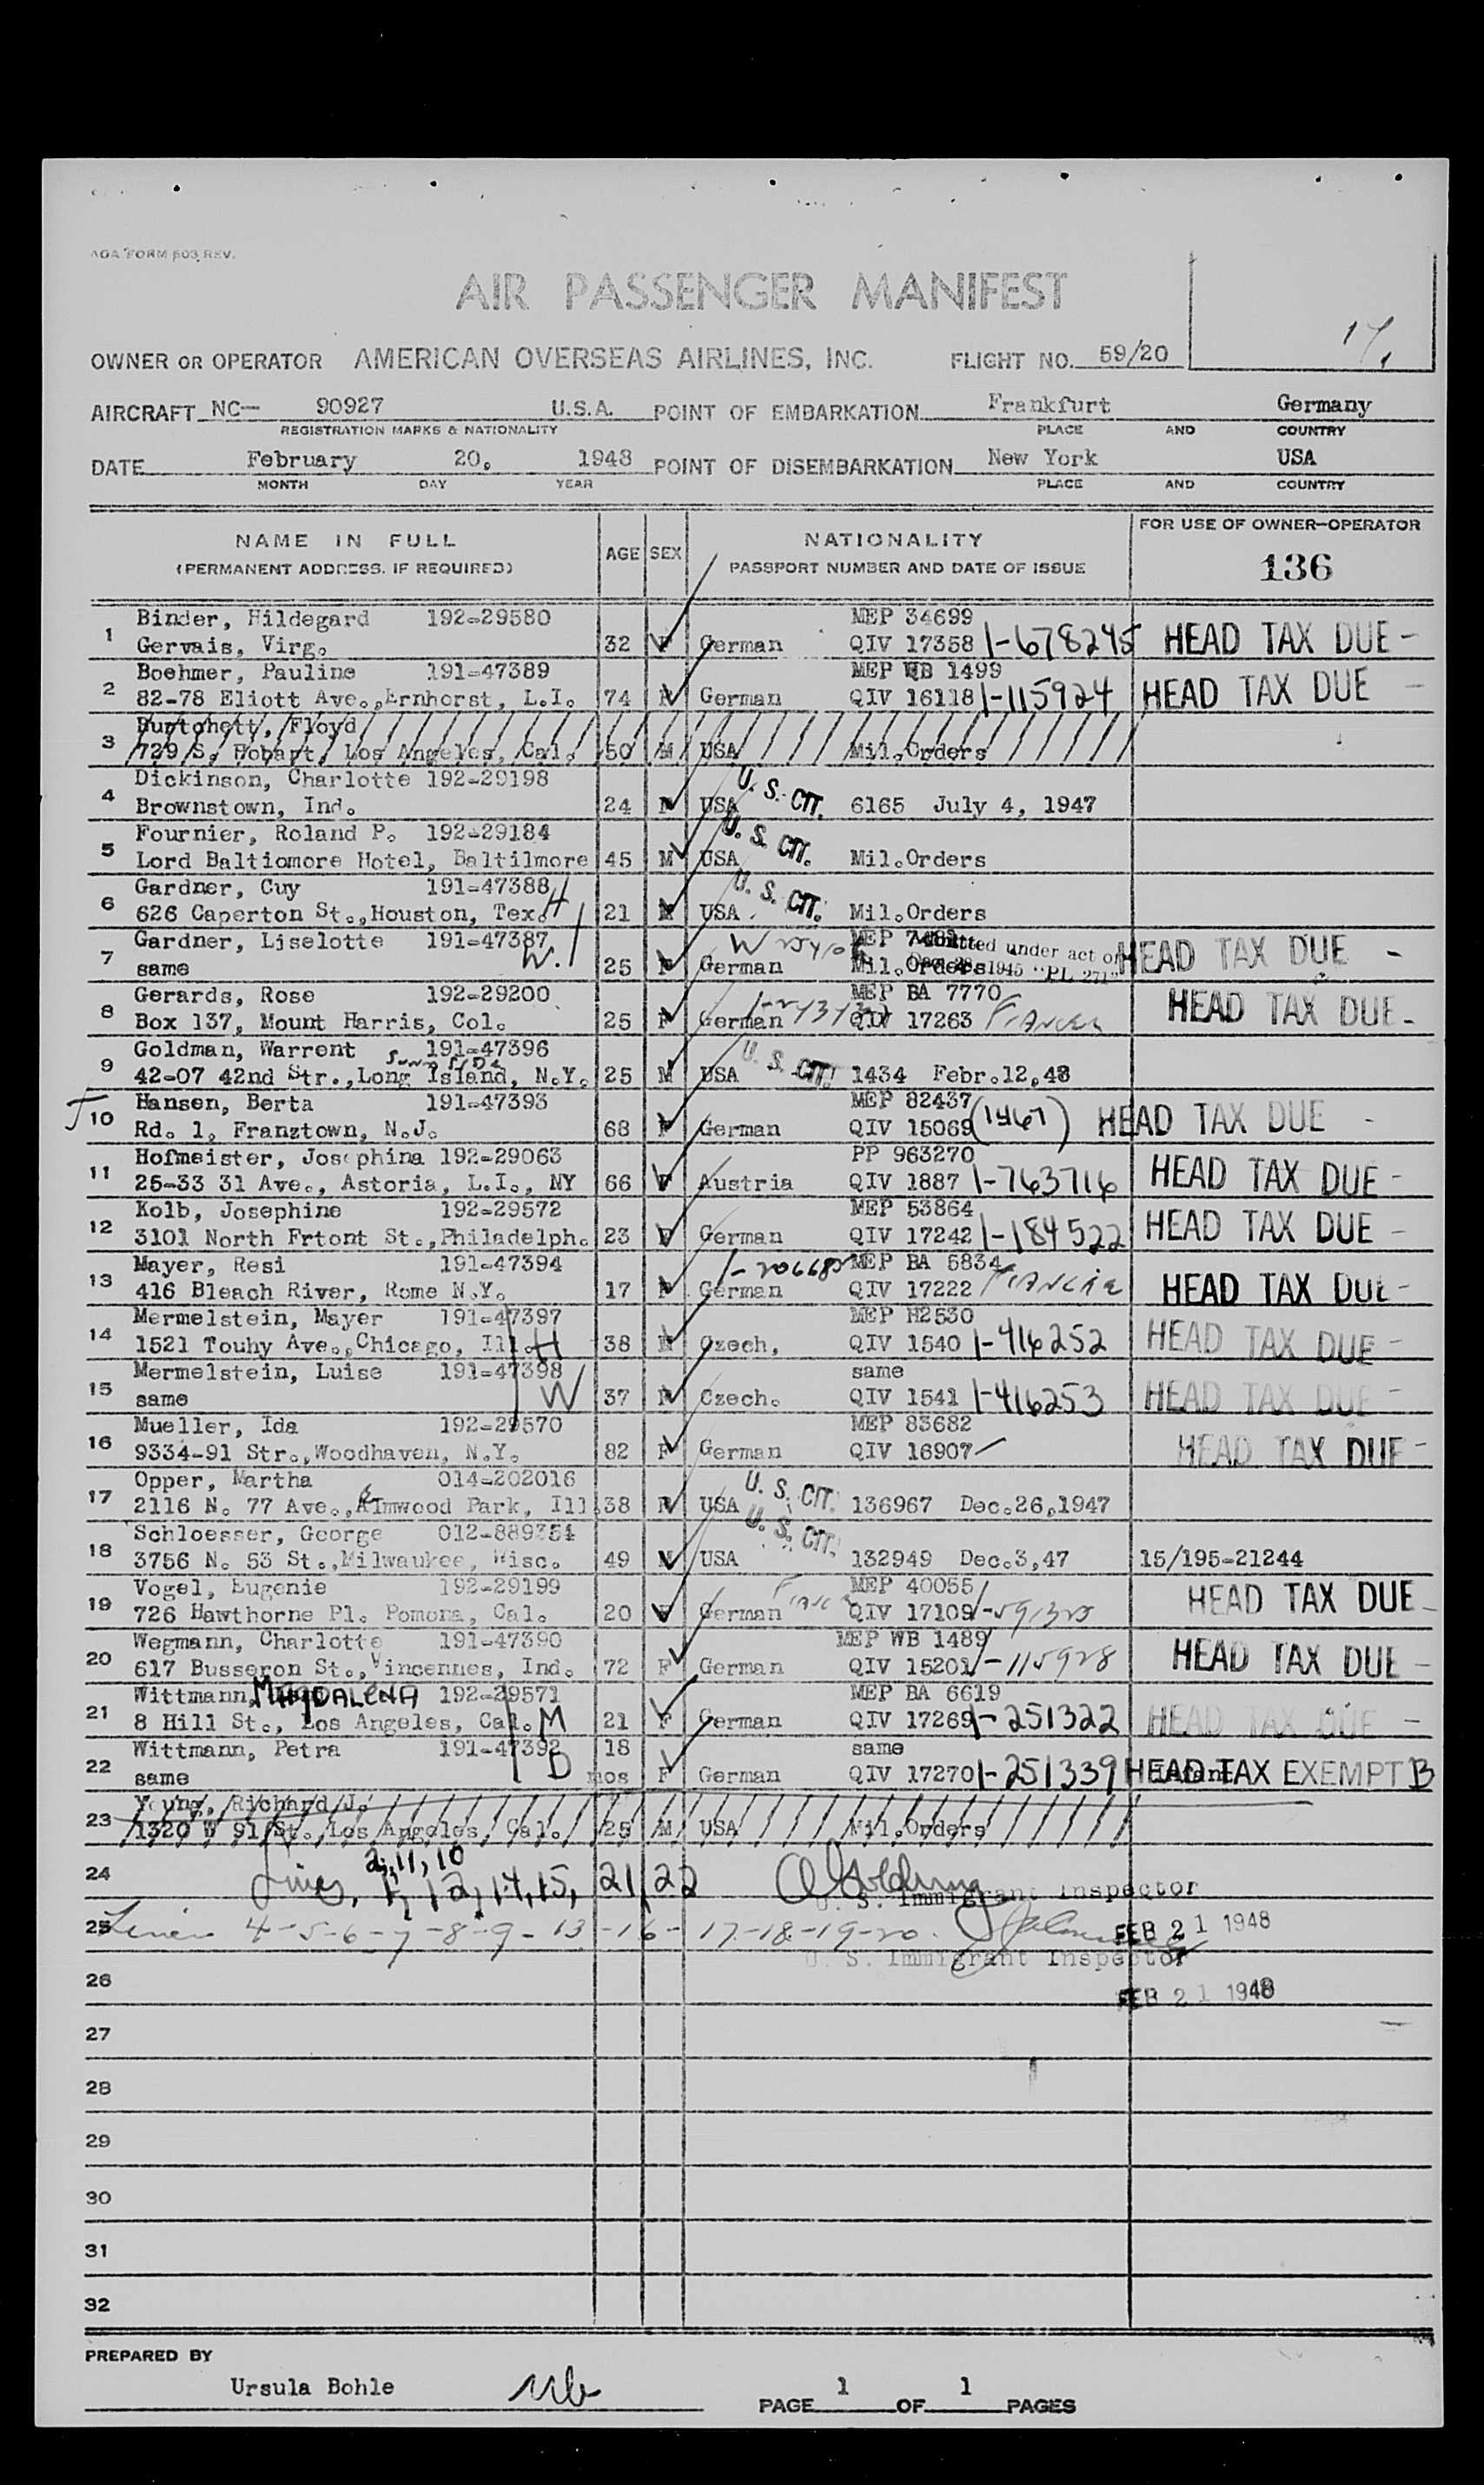 AOA FORM 503 REV.
AIR PASSENGER MANIFEST
17.
OWNER OR OPERATOR AMERICAN OVERSEAS AIRLINES, INC. FLIGHT NO. 59/20
AIRCRAFT NC- 90927 U.S.A. POINT OF EMBARKATION Frankfurt Germany
REGISTRATION MARKS & NATIONALITY PLACE AND COUNTRY
DATE February 20, 1948 POINT OF DISEMBARKATION New York USA
MONTH DAY YEAR PLACE AND COUNTRY
NAME IN FULL AGE SEX NATIONALITY FOR USE OF OWNER-OPERATOR
(PERMANENT ADDRESS, IF REQUIRED) PASSPORT NUMBER AND DATE OF ISSUE 136
Binder, Hildegard 192-29580 MEP 34699
1 Gervais, Virg. 32 F German QIV 17358 1-678245 HEAD TAX DUE -
Boehmer, Pauline 191-47389 MEP WB 1499
2 82-78 Eliott Ave., Ernhorst, L.I. 74 F German QIV 16118 1-115924 HEAD TAX DUE -
Burtchett, Floyd
3 729 S. Hobart, Los Angeles, Cal. 50 M USA Mil.Orders
Dickinson, Charlotte 192-29198 U. S. CIT.
4 Brownstown, Ind. 24 F USA 6165 July 4, 1947
Fournier, Roland P. 192-29184 U. S. CIT.
5 Lord Baltiomore Hotel, Baltilmore 45 M USA Mil.Orders
Gardner, Cuy 191-47388 U. S. CIT.
6 626 Caperton St.,Houston, Tex. H 21 M USA Mil.Orders
Gardner, Liselotte 191-47387 MEP Admitted under act of
7 same W. 25 F German Mil.Orders Dec. 28, 1945 "PL 271" HEAD TAX DUE -
Gerards, Rose 192-29200 MEP BA 7770
8 Box 137, Mount Harris, Col. 25 F German QIV 17263 HEAD TAX DUE -
Goldman, Warrent 191-47396 U. S. CIT.
9 42-07 42nd Str.,Long Island, N.Y. 25 M USA 1434 Febr.12,48
Hansen, Berta 191-47393 MEP 82437
10 Rd. 1, Franztown, N.J. 68 F German QIV 15069 HEAD TAX DUE -
Hofmeister, Josephina 192-29063 PP 963270
11 25-33 31 Ave., Astoria, L.I., NY 66 F Austria QIV 1887 1-763716 HEAD TAX DUE -
Kolb, Josephine 192-29572 MEP 53864
12 3101 North Frtont St.,Philadelph. 23 F German QIV 17242 1-184522 HEAD TAX DUE -
Mayer, Resi 191-47394 MEP BA 5834
13 416 Bleach River, Rome N.Y. 17 F German QIV 17222 HEAD TAX DUE -
Mermelstein, Mayer 191-47397 MEP H2530
14 1521 Touhy Ave.,Chicago, Ill. H 38 M Czech. QIV 1540 1-416252 HEAD TAX DUE -
Mermelstein, Luise 191-47398 same
15 same W 37 F Czech. QIV 1541 1-416253 HEAD TAX DUE -
Mueller, Ida 192-29570 MEP 83682
16 9334-91 Str.,Woodhaven, N.Y. 82 F German QIV 16907 HEAD TAX DUE -
Opper, Martha 014-202016 U. S. CIT.
17 2116 N. 77 Ave., Elmwood Park, Ill 38 F USA 136967 Dec.26,1947
Schloesser, George 012-889354 U. S. CIT.
18 3756 N. 53 St.,Milwaukee, Wisc. 49 M USA 132949 Dec.3,47 15/195-21244
Vogel, Eugenie 192-29199 MEP 40055
19 726 Hawthorne Pl. Pomona, Cal. 20 F German QIV 17109 HEAD TAX DUE -
Wegmann, Charlotte 191-47390 MEP WB 1489
20 617 Busseron St., Vincennes, Ind. 72 F German QIV 15201 1-115928 HEAD TAX DUE -
Wittmann, MAGDALENA 192-29571 MEP BA 6619
21 8 Hill St., Los Angeles, Cal. M 21 F German QIV 17269 1-251322 HEAD TAX DUE -
Wittmann, Petra 191-47392 18 same
22 same D mos F German QIV 17270 1-251339 HEAD TAX EXEMPT B
Young, Richard J.
23 1320 W 91 St.,Los Angeles, Cal. 25 M USA Mil.Orders
2, 11, 10
24 Lines, 1, 12, 14, 15, 21, 22
U. S. Immigrant Inspector
25 Lines 4-5-6-7-8-9-13-16-17-18-19-20. FEB 21 1948
U. S. Immigrant Inspector
26 FEB 21 1948
27
28
29
30
31
32
PREPARED BY
Ursula Bohle
PAGE 1 OF 1 PAGES